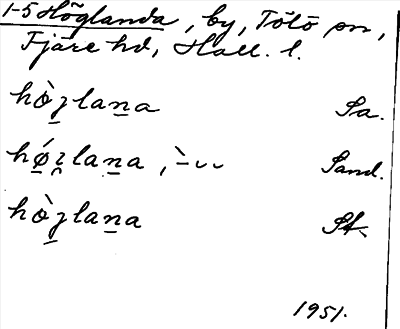 1-5 Höglanda, by, Tölö sn,
Fjäre hd, Hall. l.
hò̱ʒlaṉa Sa.
hǿ̱ʒ̥laṉa , ̀–◡◡ Sand.
hò̱ʒlaṉa St.
1951.